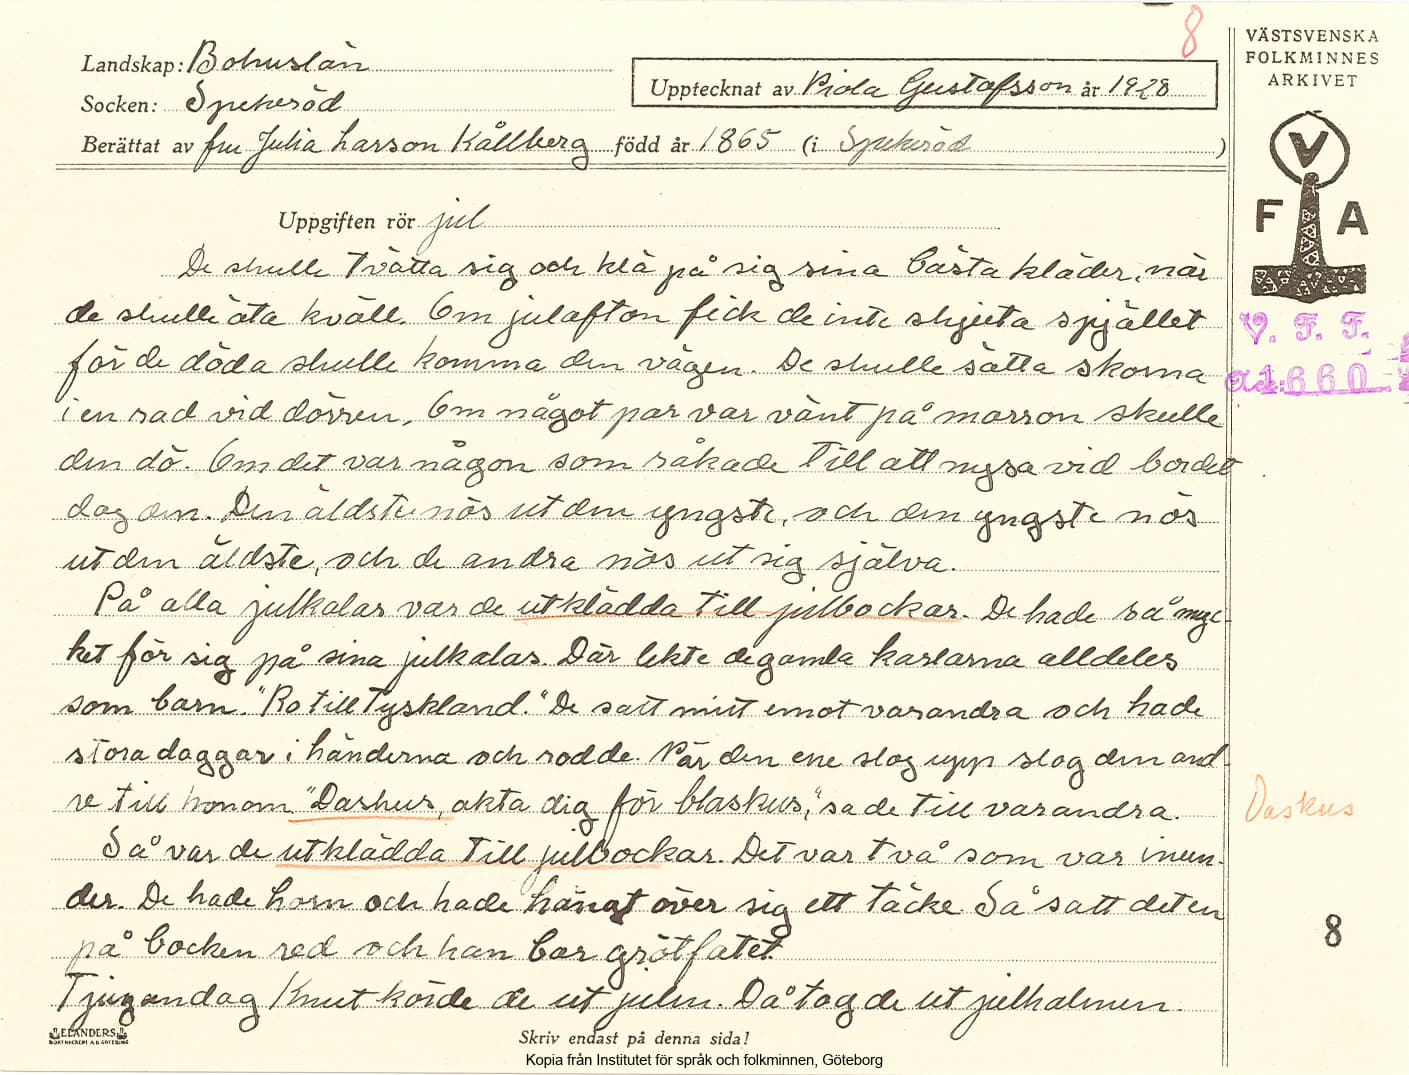 8
Landskap: Bohuslän
Socken: Spekeröd
Upptecknat av Viola Gustafsson år 1928
Berättat av fru Julia Larsson Kållberg född år 1865 (i Spekeröd)
VÄSTSVENSKA
FOLKMINNES
ARKIVET
V
F A
V. F. F.
1660
Uppgiften rör jul
De skulle tvätta sig och klä på sig sina bästa kläder, när
de skulle äta kväll. Om julafton fick de inte skjuta spjället
för de döda skulle komma den vägen. De skulle sätta skorna
i en rad vid dörren. Om något par var vänt på morron skulle
den dö. Om det var någon som råkade till att nysa vid bordet
dog den. Den äldste nös ut den yngste, och den yngste nös
ut den äldste, och de andra nös ut sig själva.
På alla julkalas var de utklädda till julbockar. De hade så myc-
ket för sig på sina julkalas. Där lekte de gamla karlarna alldeles
som barn. "Ro till Tyskland." De satt mitt emot varandra och hade
stora daggar i händerna och rodde. När den ene slog upp slog den and-
re till honom "Daskus, akta dig för blaskus," sade till varandra.
Daskus
Så var de utklädda till julbockar. Det var två som var inun-
der. De hade horn och hade hängt över sig ett täcke. Så satt det en
på bocken red och han bar grötfatet.
8
Tjugondag Knut körde de ut julen. Då tog de ut julhalmen.
ELANDERS
Skriv endast på denna sida!
Kopia från Institutet för språk och folkminnen, Göteborg